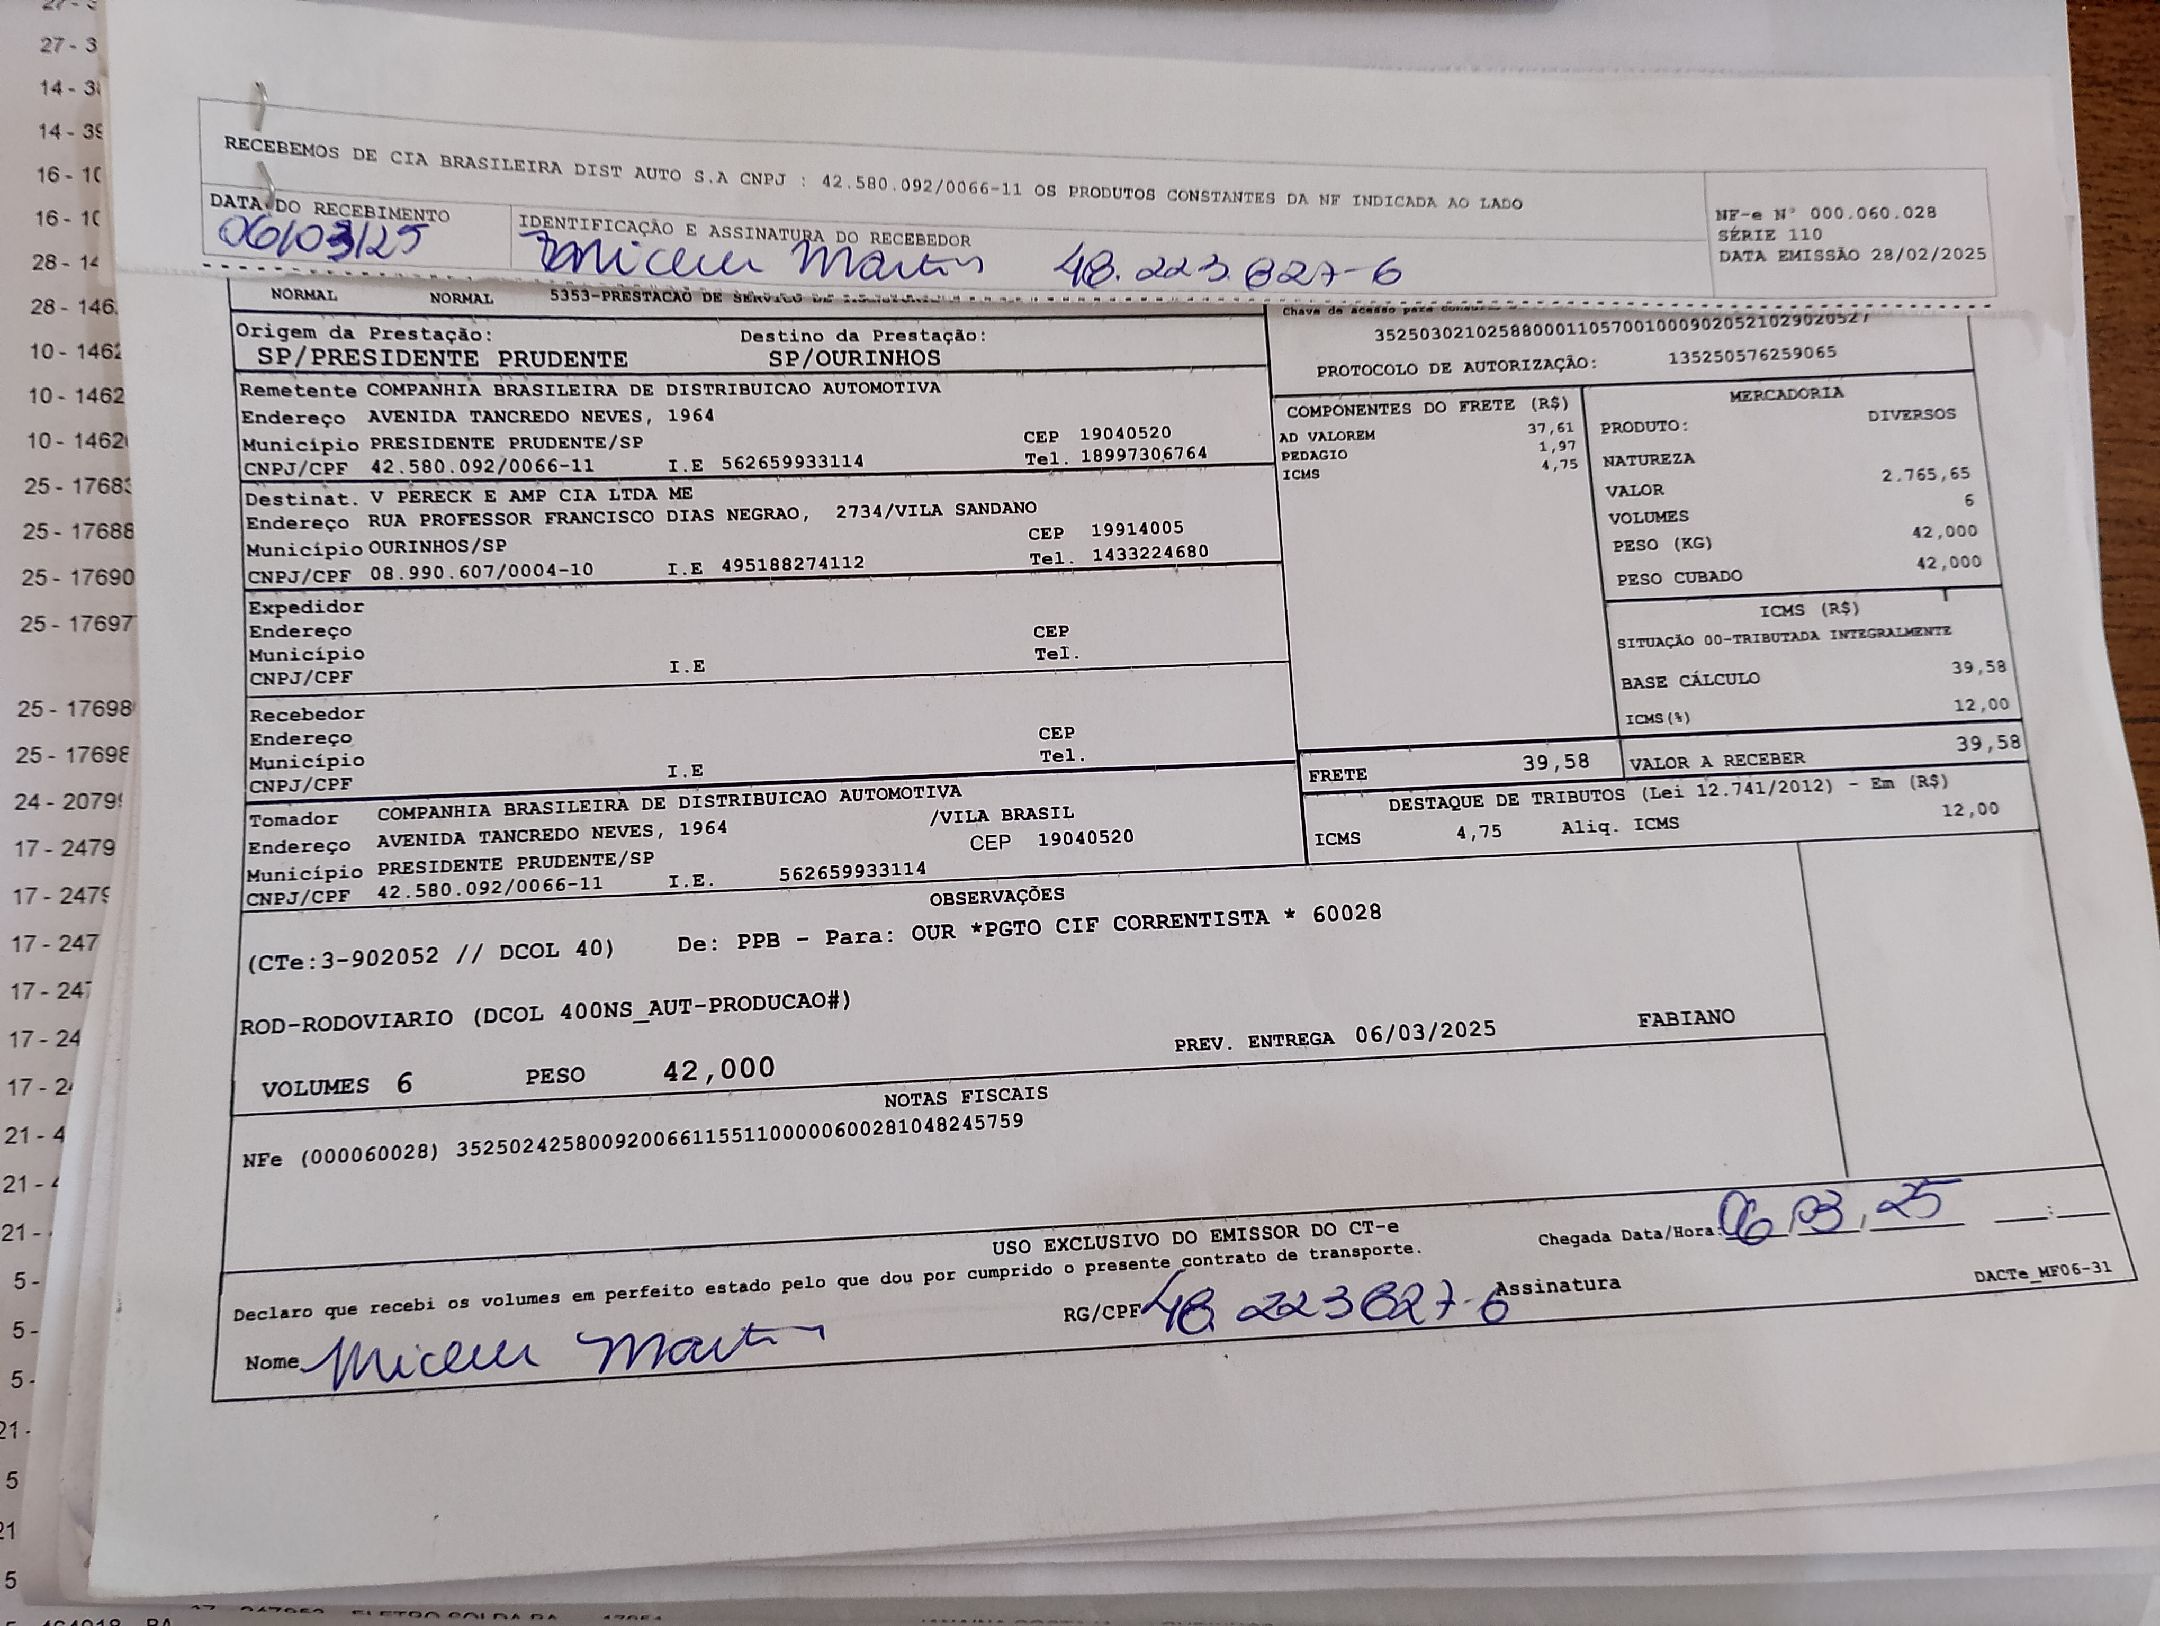 RECEBEMOS DE CIA BRASILEIRA DIST AUTO S.A CNPJ : 42.580.092/0066-11 OS PRODUTOS CONSTANTES DA NF INDICADA AO LADO
DATA DO RECEBIMENTO
06/03/25
IDENTIFICAÇÃO E ASSINATURA DO RECEBEDOR
Martins 48.223.827-6
NF-e Nº 000.060.028
SÉRIE 110
DATA EMISSÃO 28/02/2025
NORMAL NORMAL 5353-PRESTACAO DE SERVICO DE
Chave de acesso para
35250302102588000110570010009020521029020527
PROTOCOLO DE AUTORIZAÇÃO: 135250576259065
Origem da Prestação: Destino da Prestação:
SP/PRESIDENTE PRUDENTE SP/OURINHOS
Remetente COMPANHIA BRASILEIRA DE DISTRIBUICAO AUTOMOTIVA
Endereço AVENIDA TANCREDO NEVES, 1964
Município PRESIDENTE PRUDENTE/SP CEP 19040520
CNPJ/CPF 42.580.092/0066-11 I.E 562659933114 Tel. 18997306764
Destinat. V PERECK E AMP CIA LTDA ME
Endereço RUA PROFESSOR FRANCISCO DIAS NEGRAO, 2734/VILA SANDANO
Município OURINHOS/SP CEP 19914005
CNPJ/CPF 08.990.607/0004-10 I.E 495188274112 Tel. 1433224680
Expedidor
Endereço
Município CEP
CNPJ/CPF I.E Tel.
Recebedor
Endereço
Município CEP
CNPJ/CPF I.E Tel.
Tomador COMPANHIA BRASILEIRA DE DISTRIBUICAO AUTOMOTIVA
Endereço AVENIDA TANCREDO NEVES, 1964 /VILA BRASIL
Município PRESIDENTE PRUDENTE/SP CEP 19040520
CNPJ/CPF 42.580.092/0066-11 I.E. 562659933114
COMPONENTES DO FRETE (R$)
AD VALOREM 37,61
PEDAGIO 1,97
ICMS 4,75
MERCADORIA
PRODUTO: DIVERSOS
NATUREZA
VALOR 2.765,65
VOLUMES 6
PESO (KG) 42,000
PESO CUBADO 42,000
ICMS (R$)
SITUAÇÃO 00-TRIBUTADA INTEGRALMENTE
BASE CÁLCULO 39,58
ICMS(%) 12,00
FRETE 39,58 VALOR A RECEBER 39,58
DESTAQUE DE TRIBUTOS (Lei 12.741/2012) - Em (R$)
ICMS 4,75 Aliq. ICMS 12,00
OBSERVAÇÕES
(CTe:3-902052 // DCOL 40) De: PPB - Para: OUR *PGTO CIF CORRENTISTA * 60028
ROD-RODOVIARIO (DCOL 400NS_AUT-PRODUCAO#)
VOLUMES 6 PESO 42,000 PREV. ENTREGA 06/03/2025 FABIANO
NOTAS FISCAIS
NFe (000060028) 35250242580092006611551100000600281048245759
USO EXCLUSIVO DO EMISSOR DO CT-e
Declaro que recebi os volumes em perfeito estado pelo que dou por cumprido o presente contrato de transporte.
Chegada Data/Hora: 06/03/25 __:__
Nome Martins RG/CPF 48.223827-6 Assinatura
DACTe_MF06-31